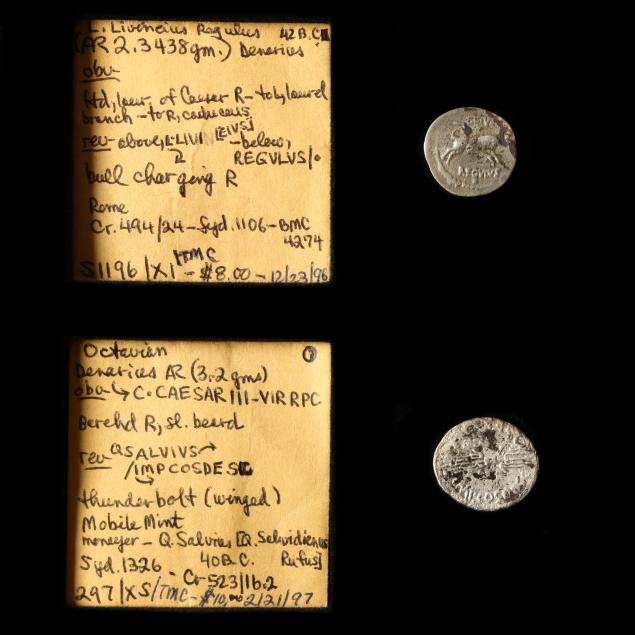 L. Livineius Regulus 42 B.C.
(AR 2.3438gm.) Denarius
obv
Hd, laur. of Caesar R - to L, laurel
branch - to R, caduceus
rev - above, L·LIVI [EIVS] - below,
REGVLVS/
bull charging R
Rome
Cr. 494/24 - Syd. 1106 - BMC
4274
TMC
S1196/X1 - $8.00 - 12/23/96
REGVLVS
Octavian
O
Denarius AR (3.2 gms)
obv C·CAESAR III-VIR RPC
Barehd R, sl. beard
rev Q SALVIVS
/IMP COS DESG
thunderbolt (winged)
Mobile Mint
moneyer - Q. Salvius [Q. Salvidienus
Syd. 1326 40 B.C. Rufus]
Cr 523/1b.2
297/XS/TMC - $10.00 2/21/97